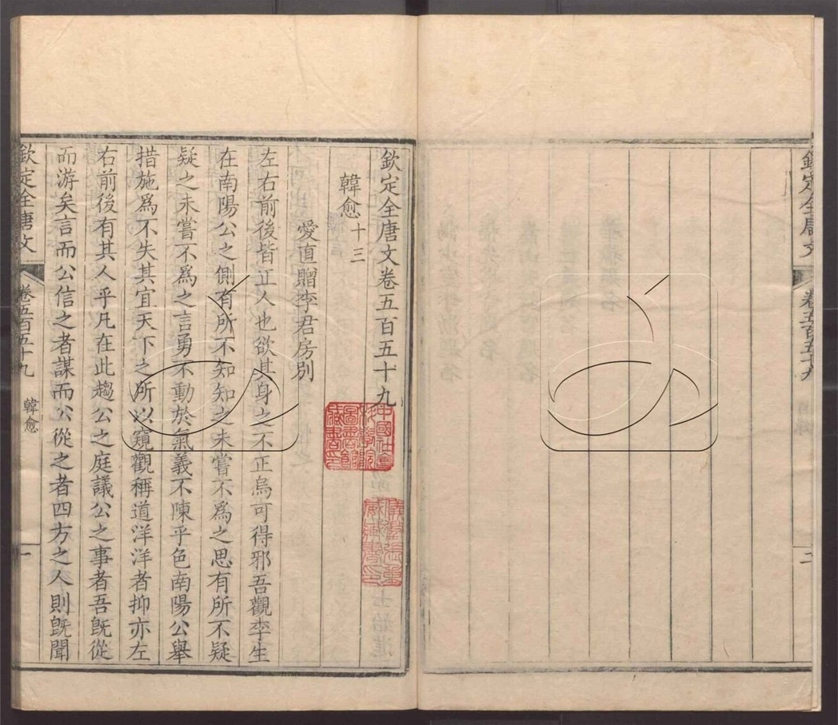 欽定全唐文 卷五百五十九 二
欽定全唐文卷五百五十九
韓愈十三
愛直贈李君房別
左右前後皆正人也欲其身之不正烏可得邪吾觀李生
在南陽公之側有所不知知之未嘗不爲之思有所不疑
疑之未嘗不爲之言勇不動於氣義不陳乎色南陽公舉
措施爲不失其宜天下之所以窺觀稱道洋洋者抑亦左
右前後有其人乎凡在此趨公之庭議公之事者吾旣從
而游矣言而公信之者謀而公從之者四方之人則旣聞
欽定全唐文 卷五百五十九 韓愈 一